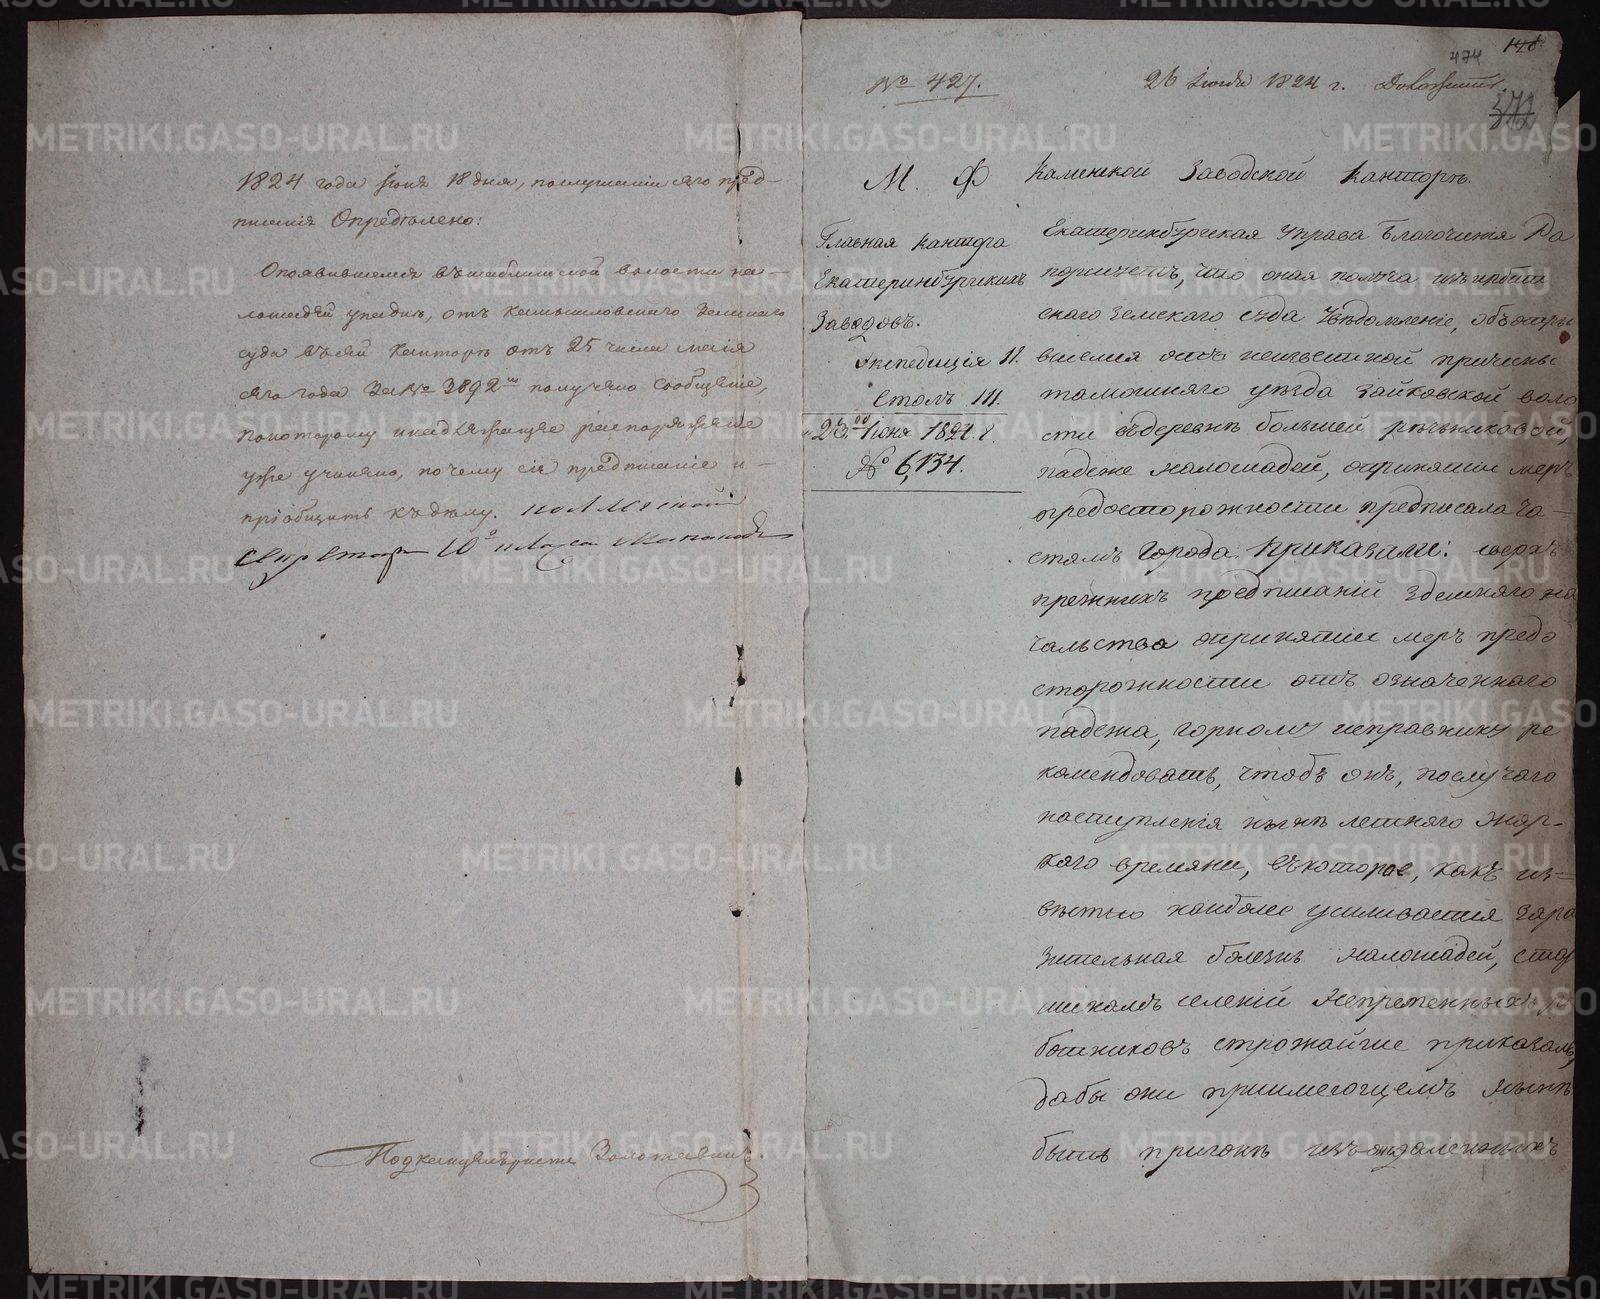 1824 года Іюня 18 дня, послушаніи сего пред-
писанія Опредѣлено:
Опоявившемся въ волости на-
лошадей упадкѣ, отъ Камышловскаго Земскаго
суда въсей канторѣ отъ 25 числа маія
сего года за № 3892мъ получено сообщеніе,
покоторому инадлежащее распоряженіе
уже учинено, почему сіе предписаніе и-
пріобщить къ дѣлу.
Секретарь
Подканцеляристъ
№ 427.
26 Іюня 1824 г.
474
372
М. Ф.
Главная Кантора
Екатеринбургскихъ
Заводовъ.
Экспедиція II.
Столъ III.
23го Іюня 1824. г.
№ 6,134.
Каменской Заводской Канторѣ.
Екатеринбургская Управа Благочинія Ра
портуетъ, что оная получа изъ Ирбит
скаго Земскаго суда Увѣдомленіе, объоткры
вшемся отъ неизвестной причины
тамошняго уезда Зайковской воло
сти въдеревнѣ Большей Речкиковой,
падеже налошадей, опринятіи меръ
предосторожности предписала Ча-
стямъ Города. Приказали: сверхъ
прежнихъ предписаній здешняго на
чальства опринятіи меръ предо
сторожности отъ означеннаго
падежа, горному исправнику ре
комендовать, чтобъ онъ, послучаю
наступленія нынѣ летняго жар-
каго времяни, въкоторое, какъ из-
вѣстно наиболее усиливается зара
зительная болезнь налошадей, стар
шинамъ селеній Непременныхъ ра
ботниковъ строжайше приказалъ,
дабы они приимеющемъ нынѣ
быть пригонѣ изъ отдаленныхъ